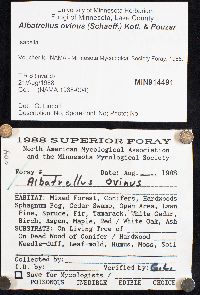 University of Minnesota Herbarium
Fungi of Minnesota, Lake County
Albatrellus ovinus (Schaeff.) Kotl. & Pouzar
Isabella
Voucher for NAMA - Minnesota Mycological Society Foray, 1988.
21 Aug 1988 MIN914491
Det.: (NAMA 1988-004)
1988 SUPERIOR FORAY
North American Mycological Association
and the Minnesota Mycological Society
Foray # Date: Aug. 1988
Albatrellus ovinus
HABITAT: Mixed Forest, Conifers, Hardwoods
Sphagnum Bog, Cedar Swamp, Open Area, Lawn
Pine, Spruce, Fir, Tamarack, White Cedar,
Birch, Aspen, Maple, Red / White Oak, Ash
SUBSTRATE: On Living Tree of
On Dead Wood of Conifer / Hardwood
Needle-Duff, Leaf mold, Humus, Moss, Soil
Collected by:
I.D. by: Verified by:
Save for Mycologists
POISONOUS INEDIBLE EDIBLE CHOICE